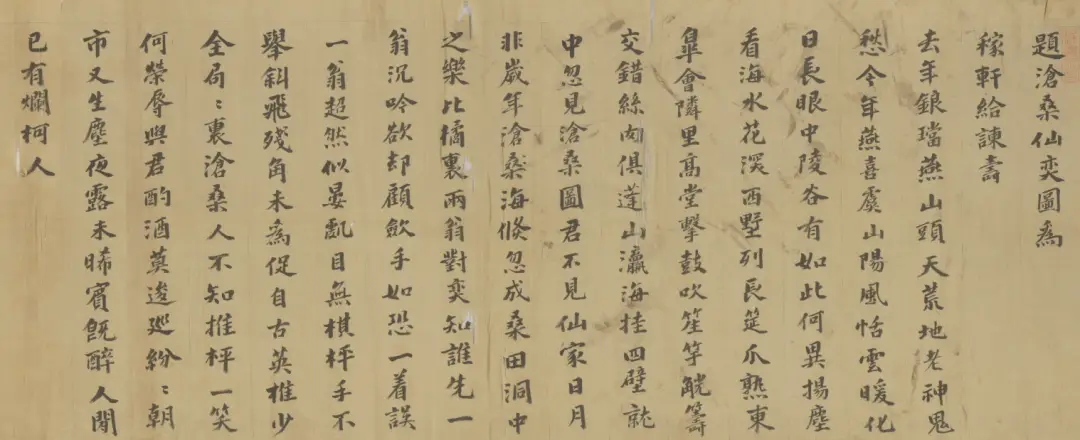 題滄桑仙奕圖為
稼軒給諫壽
去年銀璫燕山頭天荒地老神鬼
愁今年燕喜虞山陽風恬雲暖化
日長眼中陵谷有如此何異揚塵
看海水花溪西墅列長筵爪熟東
皐會隣里高堂擊鼓吹笙竽觥籌
交錯絲肉俱蓬山瀛海挂四壁就
中忽見滄桑圖君不見仙家日月
非歲年滄桑海倏忽成桑田洞中
之樂比橘裏兩翁對奕知誰先一
翁沉吟欲却顧斂手如恐一着誤
一翁超然似晏亂目無棋枰手不
舉斜飛殘角未為促自古英雄少
全局〻裏滄桑人不知推枰一笑
何榮辱與君酌酒莫逡廵紛〻朝
市又生塵夜露未晞賓旣醉人間
已有爛柯人